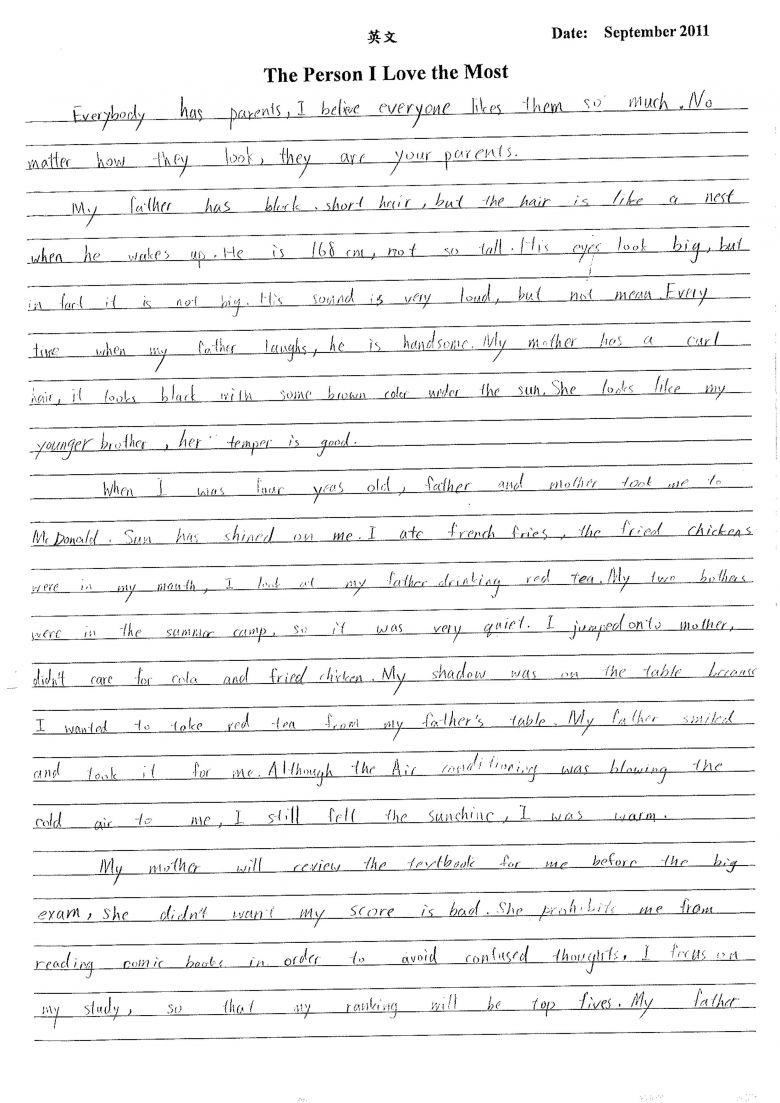 英文
Date: September 2011
The Person I Love the Most
Everybody has parents, I believe everyone likes them so much. No
matter how they look, they are your parents.
My father has black, short hair, but the hair is like a nest
when he wakes up. He is 168 cm, not so tall. His eyes look big, but
in fact it is not big. His sound is very loud, but not mean. Every
time when my father laughs, he is handsome. My mother has a curl
hair, it looks black with some brown color under the sun. She looks like my
younger brother, her temper is good.
When I was four yeas old, father and mother took me to
McDonald. Sun has shined on me. I ate french fries, the fried chickens
were in my mouth, I look at my father drinking red tea. My two bothers
were in the summer camp, so it was very quiet. I jumped onto mother,
didn't care for cola and fried chicken. My shadow was on the table because
I wanted to take red tea from my father's table. My father smiled
and took it for me. Although the Air conditioning was blowing the
cold air to me, I still fell the sunshine, I was warm.
My mother will review the textbook for me before the big
exam, she didn't want my score is bad. She prohibits me from
reading comic books in order to avoid confused thoughts, I focus on
my study, so that my ranking will be top fives. My father